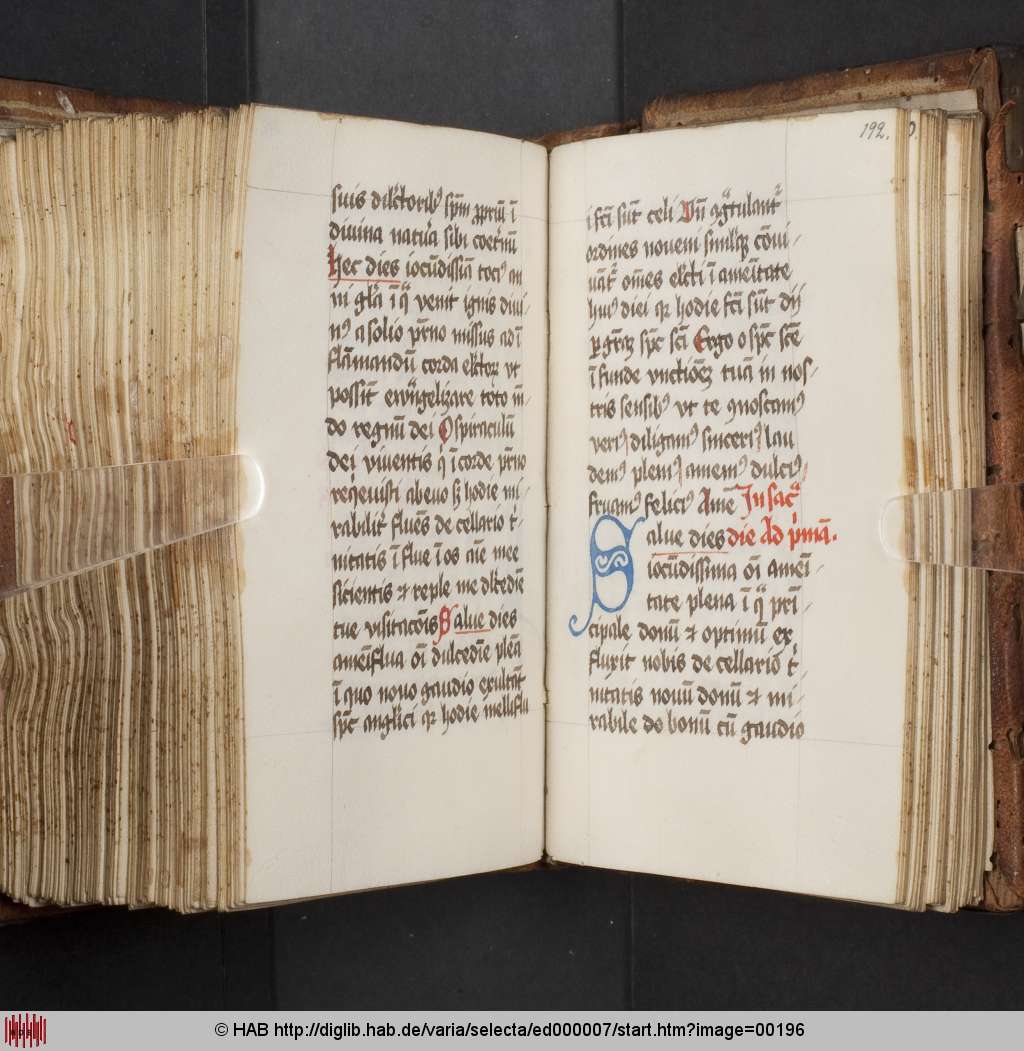 suis dil̄ctoribꝰ sp̄m ꝓpriū ī
divina natur̄a sibi coet̄nū
hec dies iocūdissīa tociꝰ an
ni gl̄a ī q̄ venit ignis divi
nꝰ a solio pr̄no missus ad ī
flāmandū corda elctoꝝ vt
possīt ewāgelizare toto mū
do regnū dei O spiraculū
dei viventis q̇ ī corde pr̄no
reqevisti ab evo sꝫ hodie mi
rabilit̄ fluēs de cellario t̄ꝛ
nitatis ī flue ī os aīe mee
sicientis ⁊ reple me dlcedīe
tue visitacōis Salue dies
amēiflua oī dulcedīe plēa
ī quo novo gaudio exultāt
spūs anglīci qꝛ hodie melliflu
192.
i fc̄i sūt celi Vn̄ ꝯgͣtulant̄ꝛ
ordines noveni simlꝗꝫ cōvi,
vāt̄ om̄es elcti ī amēitate
huiꝰ diei qꝛ hodie fc̄i sūt dij
ꝑ grāꝫ spūs scī Ergo o spūs scē
ī funde vnctiōeꝫ tuā in nos,
tris sensibꝰ vt te ꝯnoscamꝰ
veriꝰ diligamꝰ sinceriꝰ lau
demꝰ pleniꝰ amemꝰ dulciꝰ
fruamꝰ feliciꝰ Amē In sacͣ
Salue dies die Ad pͥmā.
iocūdissima oī amēi,
tate plena ī q̄ prī,
cipale donū ⁊ optimū ex,
fluxit nobis de cellario t̄ꝛ
nitatis novū donū ⁊ mi,
rabile do bonū cū gaudio
© HAB http://diglib.hab.de/varia/selecta/ed000007/start.htm?image=00196